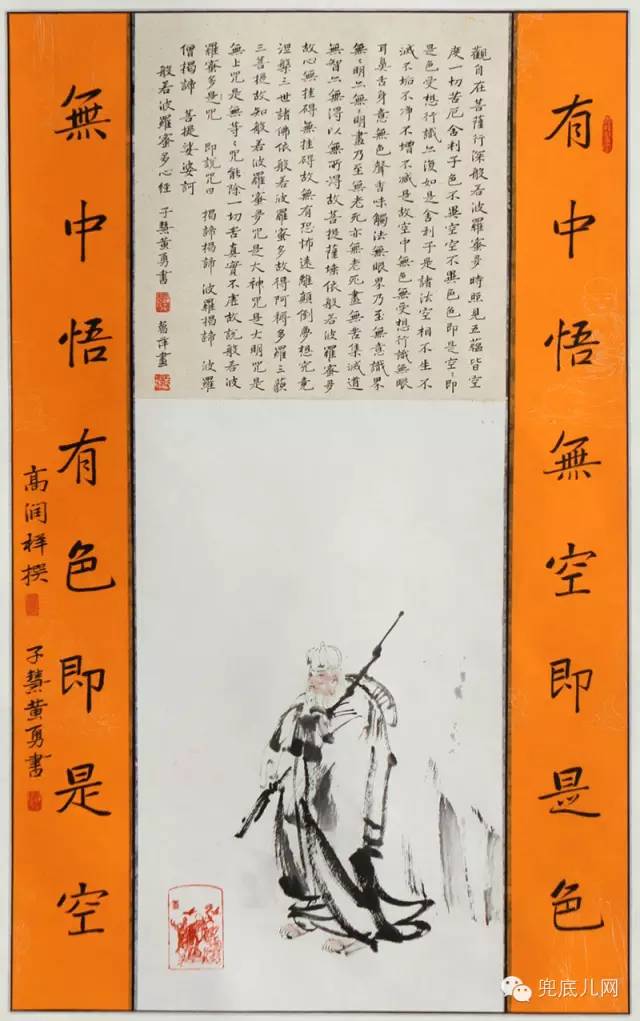 有中悟無空即是色
觀自在菩薩行深般若波羅蜜多時照見五蘊皆空
度一切苦厄舍利子色不異空空不異色色即是空〻即
是色受想行識亦復如是舍利子是諸法空相不生不
滅不垢不淨不增不減是故空中無色無受想行識無眼
耳鼻舌身意無色聲香味觸法無眼界乃至無意識界
無〻明亦無〻明盡乃至無老死亦無老死盡無苦集滅道
無智亦無得以無所得故菩提薩埵依般若波羅蜜多
故心無挂碍無挂碍故無有恐怖遠離顛倒夢想究竟
涅槃三世諸佛依般若波羅蜜多故得阿耨多羅三藐
三菩提故知般若波羅蜜多咒是大神咒是大明咒是
無上咒是無等〻咒能除一切苦真實不虛故說般若波
羅蜜多是咒 即說咒曰 揭諦揭諦 波羅揭諦 波羅
僧揭諦 菩提娑婆訶
般若波羅蜜多心經 子慧黃勇書
畫
無中悟有色即是空
高润祥撰
子慧黃勇書
兜底儿网